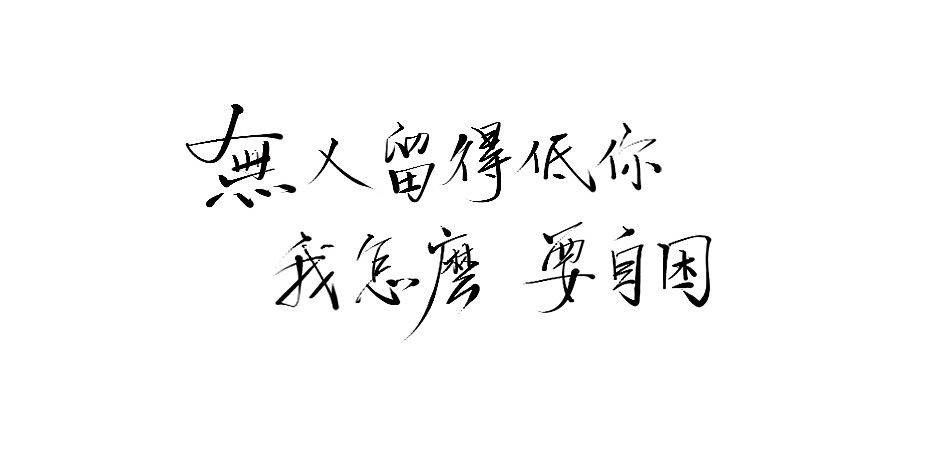 無人留得低你
我怎麼 要自困